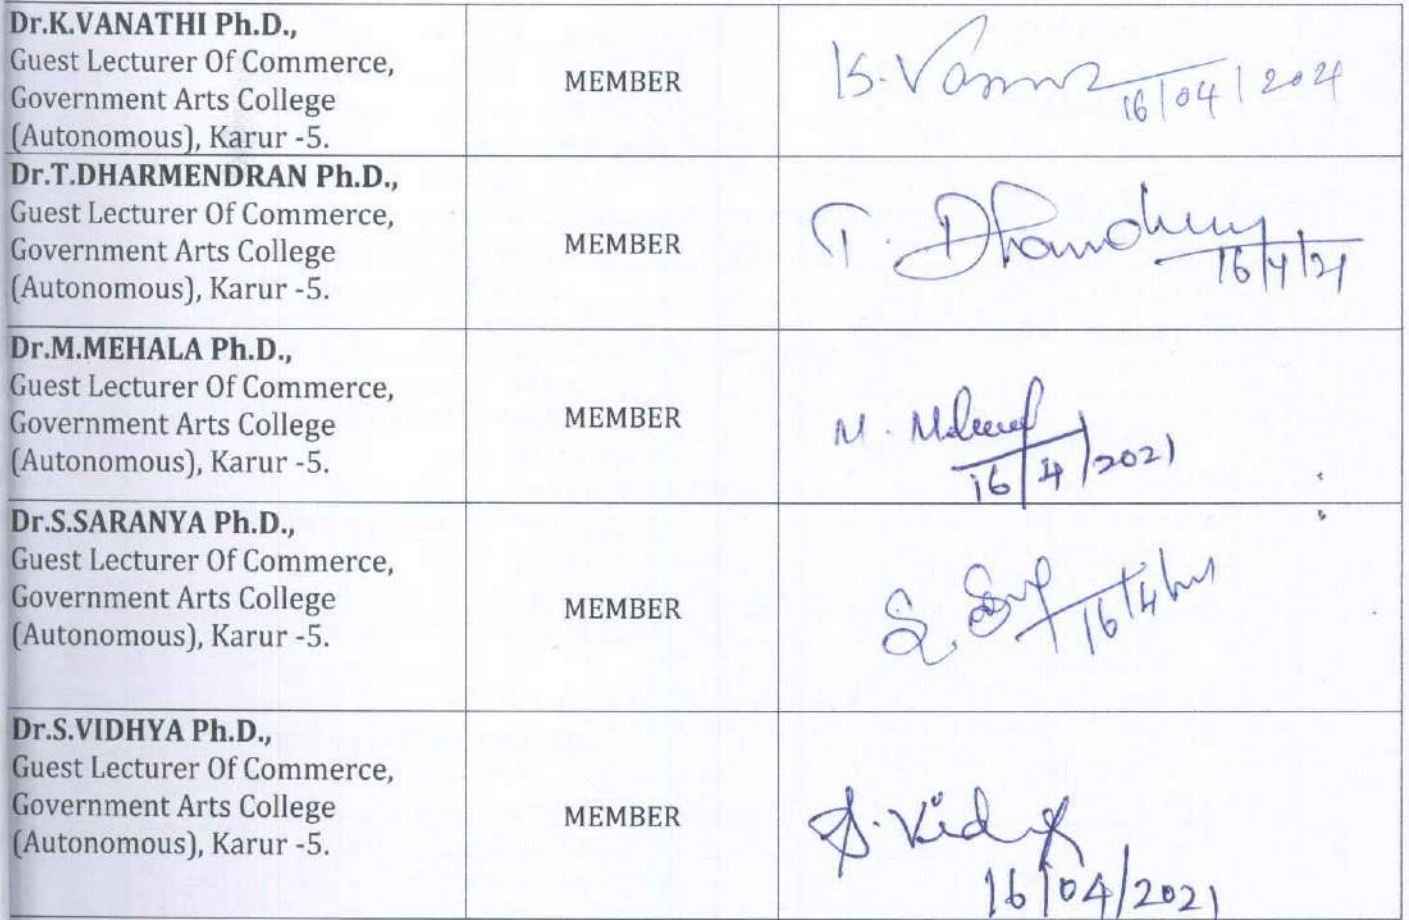 Dr.K.VANATHI Ph.D.,
Guest Lecturer Of Commerce,
Government Arts College
(Autonomous), Karur -5.
MEMBER
16/04/2021
Dr.T.DHARMENDRAN Ph.D.,
Guest Lecturer Of Commerce,
Government Arts College
(Autonomous), Karur -5.
MEMBER
T.
16/4/21
Dr.M.MEHALA Ph.D.,
Guest Lecturer Of Commerce,
Government Arts College
(Autonomous), Karur -5.
MEMBER
M.
16/4/2021
Dr.S.SARANYA Ph.D.,
Guest Lecturer Of Commerce,
Government Arts College
(Autonomous), Karur -5.
MEMBER
S.
16/4/
Dr.S.VIDHYA Ph.D.,
Guest Lecturer Of Commerce,
Government Arts College
(Autonomous), Karur -5.
MEMBER
S.
16/04/2021